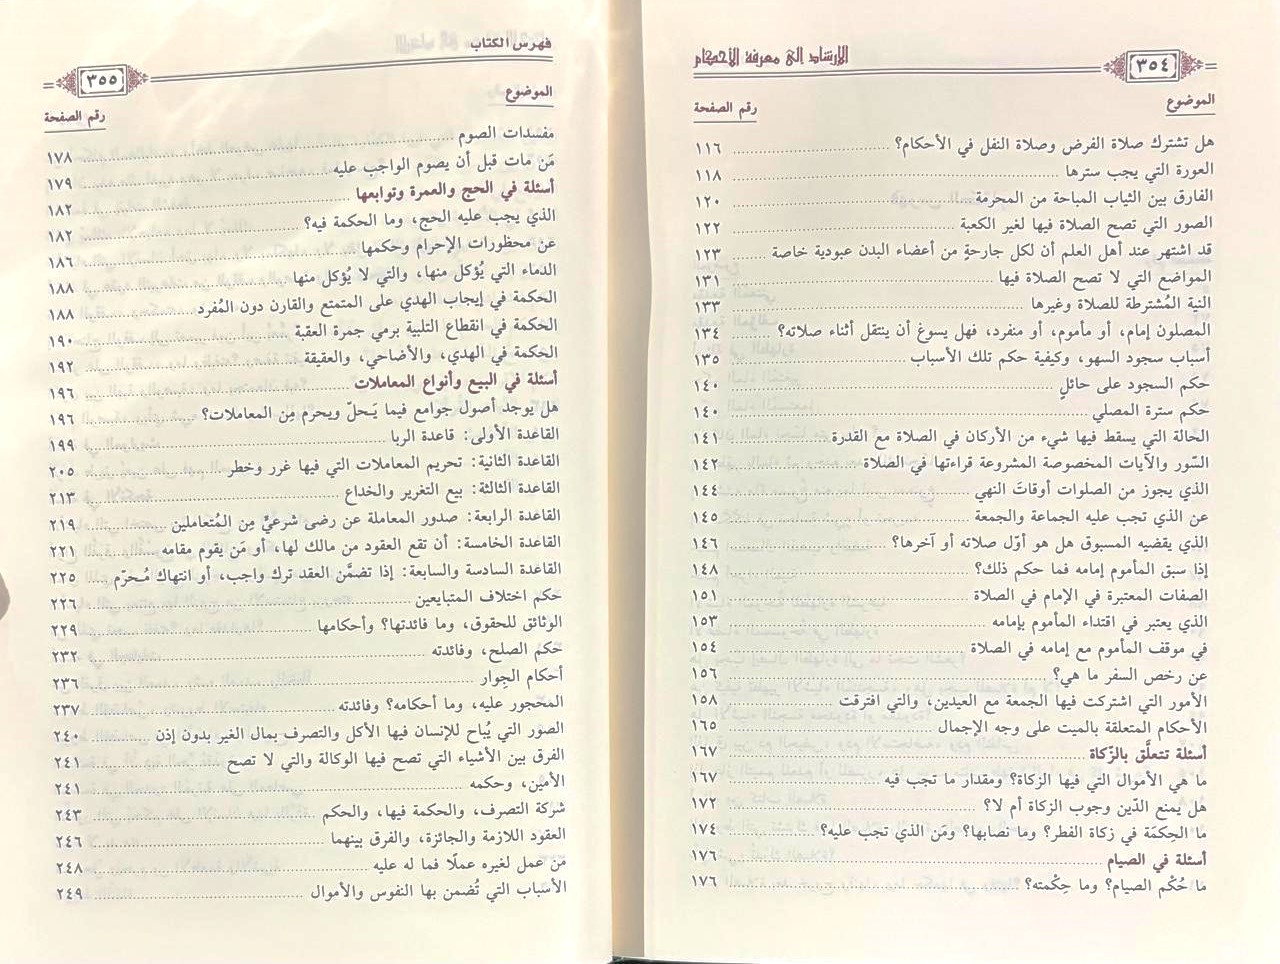 الإرشاد إلى معرفة الأحكام
٣٥٤
الموضوع رقم الصفحة
هل تشترك صلاة الفرض وصلاة النفل في الأحكام؟ ١١٦
العورة التي يجب سترها ١١٨
الفارق بين الثياب المباحة من المحرمة ١٢٠
الصور التي تصح الصلاة فيها لغير الكعبة ١٢٢
قد اشتهر عند أهل العلم أن لكل جارحةٍ من أعضاء البدن عبودية خاصة ١٢٣
المواضع التي لا تصح الصلاة فيها ١٣١
النية المُشترطة للصلاة وغيرها ١٣٣
المصلون إمام، أو مأموم، أو منفرد، فهل يسوغ أن ينتقل أثناء صلاته؟ ١٣٤
أسباب سجود السهو، وكيفية حكم تلك الأسباب ١٣٥
حكم السجود على حائلٍ ١٤٠
حكم سترة المصلي ١٤٠
الحالة التي يسقط فيها شيء من الأركان في الصلاة مع القدرة ١٤١
السّور والآيات المخصوصة المشروعة قراءتها في الصلاة ١٤٢
الذي يجوز من الصلوات أوقاتَ النهي ١٤٤
عن الذي تجب عليه الجماعة والجمعة ١٤٥
الذي يقضيه المسبوق هل هو أوّل صلاته أو آخرها؟ ١٤٦
إذا سبق المأموم إمامه فما حكم ذلك؟ ١٤٨
الصفات المعتبرة في الإمام في الصلاة ١٥١
الذي يعتبر في اقتداء المأموم بإمامه ١٥٣
في موقف المأموم مع إمامه في الصلاة ١٥٤
عن رخص السفر ما هي؟ ١٥٦
الأمور التي اشتركت فيها الجمعة مع العيدين، والتي افترقت ١٥٨
الأحكام المتعلقة بالميت على وجه الإجمال ١٦٥
أسئلة تتعلَّق بالزّكاة ١٦٧
ما هي الأموال التي فيها الزكاة؟ ومقدار ما تجب فيه ١٦٧
هل يمنع الدّين وجوب الزكاة أم لا؟ ١٧٢
ما الحِكمَة في زكاة الفطر؟ وما نصابها؟ ومَن الذي تجب عليه؟ ١٧٤
أسئلة في الصيام ١٧٦
ما حُكْم الصيام؟ وما حِكْمته؟ ١٧٦
فهرس الكتاب
٣٥٥
الموضوع رقم الصفحة
مفسدات الصوم ١٧٨
مَن مات قبل أن يصوم الواجب عليه ١٧٩
أسئلة في الحج والعمرة وتوابعها ١٨٢
الذي يجب عليه الحج، وما الحكمة فيه؟ ١٨٢
عن محظورات الإحرام وحكمها ١٨٦
الدماء التي يُؤكل منها، والتي لا يُؤكل منها ١٨٨
الحكمة في إيجاب الهدي على المتمتع والقارن دون المُفرد ١٨٨
الحكمة في انقطاع التلبية برمي جمرة العقبة ١٩٠
الحكمة في الهدي، والأضاحي، والعقيقة ١٩٢
أسئلة في البيع وأنواع المعاملات ١٩٦
هل يوجد أصول جوامع فيما يَحلّ ويحرم مِن المعاملات؟ ١٩٦
القاعدة الأولى: قاعدة الربا ١٩٩
القاعدة الثانية: تحريم المعاملات التي فيها غرر وخطر ٢٠٥
القاعدة الثالثة: بيع التغرير والخداع ٢١٣
القاعدة الرابعة: صدور المعاملة عن رضى شرعيٍّ مِن المُتعاملين ٢١٩
القاعدة الخامسة: أن تقع العقود من مالك لها، أو مَن يقوم مقامه ٢٢١
القاعدة السادسة والسابعة: إذا تضمَّن العقد ترك واجب، أو انتهاك مُحرّم ٢٢٥
حكم اختلاف المتبايعين ٢٢٦
الوثائق للحقوق، وما فائدتها؟ وأحكامها ٢٢٩
حكم الصلح، وفائدته ٢٣٢
أحكام الجِوار ٢٣٦
المحجور عليه، وما أحكامه؟ وفائدته ٢٣٧
الصور التي يُباح للإنسان فيها الأكل والتصرف بمال الغير بدون إذن ٢٤٠
الفرق بين الأشياء التي تصح فيها الوكالة والتي لا تصح ٢٤١
الأمين، وحكمه ٢٤١
شركة التصرف، والحكمة فيها، والحكم ٢٤٣
العقود اللازمة والجائزة، والفرق بينهما ٢٤٦
مَن عمل لغيره عملًا فما له عليه ٢٤٨
الأسباب التي تُضمن بها النفوس والأموال ٢٤٩